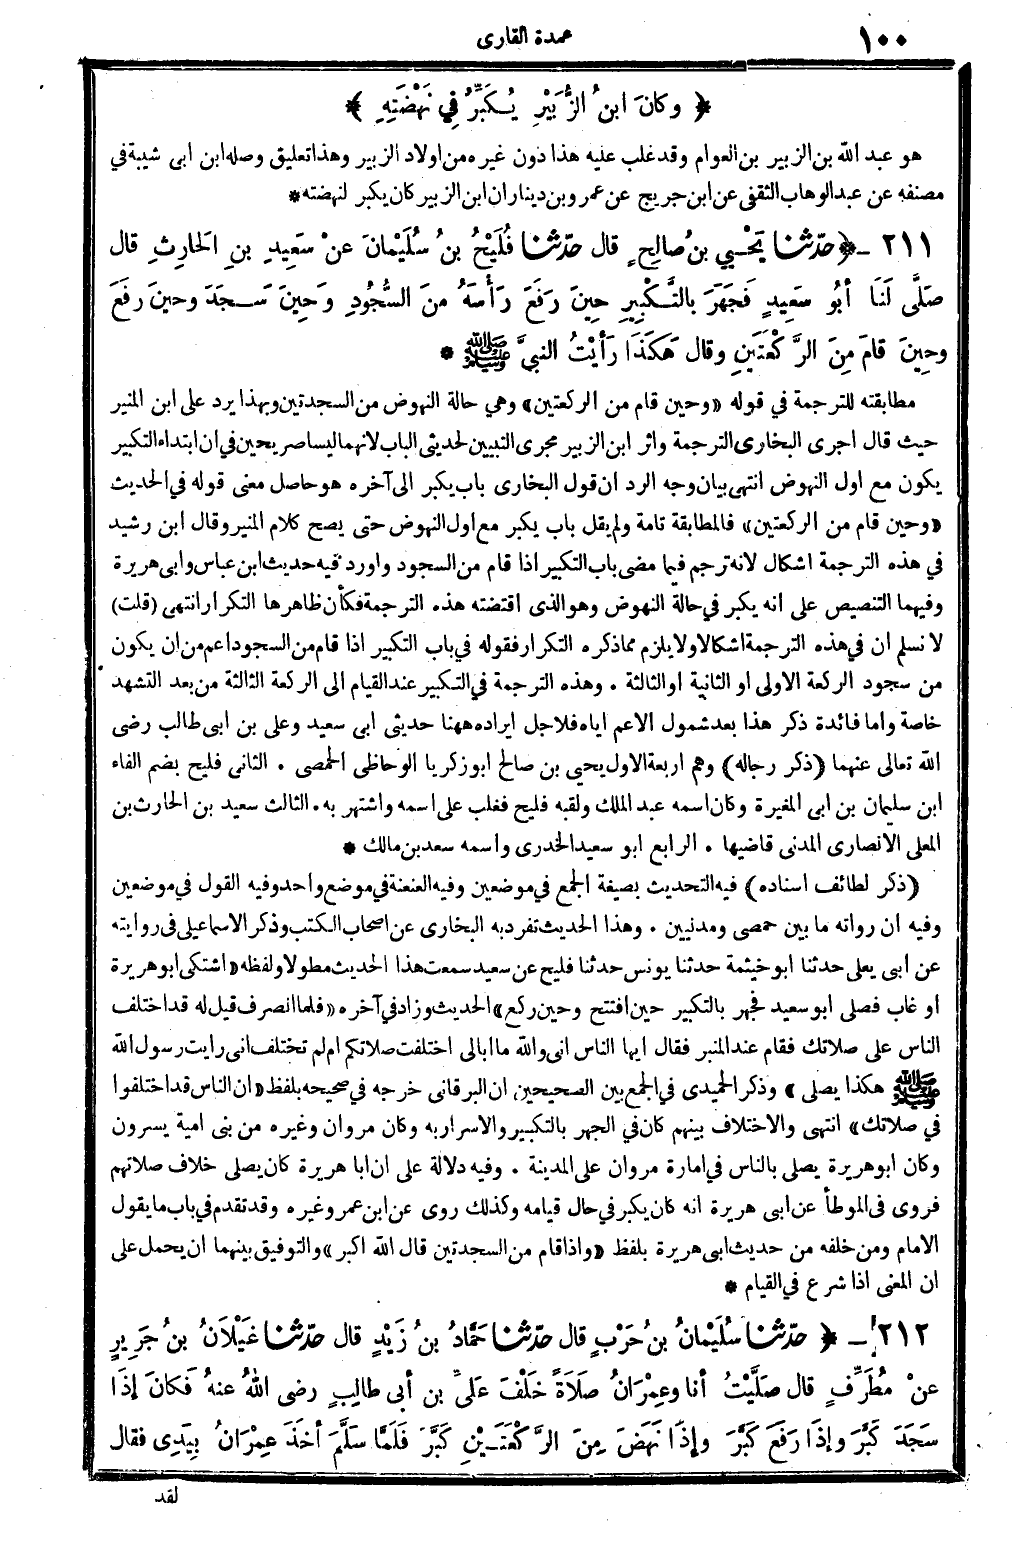 ١٠٠
عمدة القارى
﴿ وكانَ ابنُ الزُّبَيْرِ يُكَبِّرُ فِي نَهْضَتِهِ ﴾
هو عبد الله بن الزبير بن العوام وقد غلب عليه هذا دون غيره من اولاد الزبير وهذا تعليق وصله ابن ابى شيبة في
مصنفه عن عبد الوهاب الثقفى عن ابن جريج عن عمرو بن دينار ان ابن الزبير كان يكبر لنهضته *
٢١١ ـ ﴿ حدّثنا يَحْـيي بنُ صالِحٍ قال حدّثنا فُلَيْحُ بنُ سُلَيْمانَ عنْ سَعِيدِ بنِ الحَارِثِ قال
صَلَّى لَنَا أبُو سَعِيدٍ فَجَهَرَ بالتَّـكْبِيرِ حِينَ رَفَعَ رَأْسَهُ منَ السُّجُودِ وَحِينَ سَـجَدَ وحينَ رفَعَ
وحِينَ قامَ مِنَ الرَّكْعَتَيْنِ وقال هَكَذَا رَأيْتُ النبيَّ ﷺ *
مطابقته للترجمة في قوله «وحين قام من الركعتين» وهي حالة النهوض من السجدتين وبهذا يرد على ابن المنير
حيث قال اجرى البخارى الترجمة واثر ابن الزبير مجرى التبيين لحديثى الباب لانهما ليسا صريحين في ان ابتداء التكبير
يكون مع اول النهوض انتهى بيان وجه الرد ان قول البخارى باب يكبر الى آخره هو حاصل معنى قوله في الحديث
«وحين قام من الركعتين» فالمطابقة تامة ولم يقل باب يكبر مع اول النهوض حتى يصح كلام المنير وقال ابن رشيد
في هذه الترجمة اشكال لانه ترجم فيما مضى باب التكبير اذا قام من السجود واورد فيه حديث ابن عباس وابى هريرة
وفيهما التنصيص على انه يكبر في حالة النهوض وهو الذى اقتضته هذه الترجمة فكأن ظاهرها التكرار انتهى (قلت)
لا نسلم ان في هذه الترجمة اشكالا ولا يلزم مما ذكره التكرار فقوله في باب التكبير اذا قام من السجود اعم من ان يكون
من سجود الركعة الاولى او الثانية او الثالثة . وهذه الترجمة في التكبير عند القيام الى الركعة الثالثة من بعد التشهد
خاصة واما فائدة ذكر هذا بعد شمول الاعم اياه فلاجل ايراده ههنا حديثى ابى سعيد وعلى بن ابى طالب رضى
الله تعالى عنهما (ذكر رجاله) وهم اربعة الاول يحيى بن صالح ابو زكريا الوحاظى الحمصى . الثانى فليح بضم الفاء
ابن سليمان بن ابى المغيرة وكان اسمه عبد الملك ولقبه فليح فغلب على اسمه واشتهر به . الثالث سعيد بن الحارث بن
المعلى الانصارى المدنى قاضيها . الرابع ابو سعيد الخدرى واسمه سعد بن مالك *
(ذكر لطائف اسناده) فيه التحديث بصيغة الجمع في موضعين وفيه العنعنة في موضع واحد وفيه القول في موضعين
وفيه ان رواته ما بين حمصى ومدنيين . وهذا الحديث تفرد به البخارى عن اصحاب الكتب وذكر الاسماعيلى فى روايته
عن أبى يعلى حدثنا ابو خيثمة حدثنا يونس حدثنا فليح عن سعيد سمعت هذا الحديث مطولا ولفظه «اشتكى ابو هريرة
او غاب فصلى ابو سعيد فجهر بالتكبير حين افتتح وحين ركع» الحديث وزاد في آخره «فلما انصرف قيل له قد اختلف
الناس على صلاتك فقام عند المنبر فقال ايها الناس انى والله ما ابالى اختلفت صلاتكم ام لم تختلف انى رايت رسول الله
ﷺ هكذا يصلى» وذكر الحميدى في الجمع بين الصحيحين ان البرقانى خرجه في صحيحه بلفظ «ان الناس قد اختلفوا
في صلاتك» انتهى والاختلاف بينهم كان في الجهر بالتكبير والاسرار به وكان مروان وغيره من بنى امية يسرون
وكان ابو هريرة يصلى بالناس في امارة مروان على المدينة . وفيه دلالة على ان ابا هريرة كان يصلى خلاف صلاتهم
فروى فى الموطأ عن ابى هريرة انه كان يكبر في حال قيامه وكذلك روى عن ابن عمر وغيره وقد تقدم في باب ما يقول
الامام ومن خلفه من حديث ابى هريرة بلفظ «واذا قام من السجدتين قال الله اكبر» والتوفيق بينهما ان يحمل على
ان المعنى اذا شرع في القيام *
٢١٢ ـ ﴿ حدّثنا سُلَيْمانُ بنُ حَرْبٍ قال حدّثنا حَمَّادُ بنُ زَيْدٍ قال حدّثنا غَيْلَانُ بنُ جَرِيرٍ
عنْ مُطَرِّفٍ قال صَلَّيْتُ أنا وعِمْرَانُ صَلاَةً خَلْفَ عَلَىِّ بن أبى طالِبٍ رضى اللهُ عنهُ فَكانَ إذَا
سَجَدَ كَبَّرَ وإذَا رَفَعَ كَبَّرَ وإذَا نَهَضَ مِنَ الرَّكْعَتَـيْنِ كَبَّرَ فَلَمَّا سَلَّمَ أخَذَ عِمْرَانُ بِيَدِى فقال
لقد